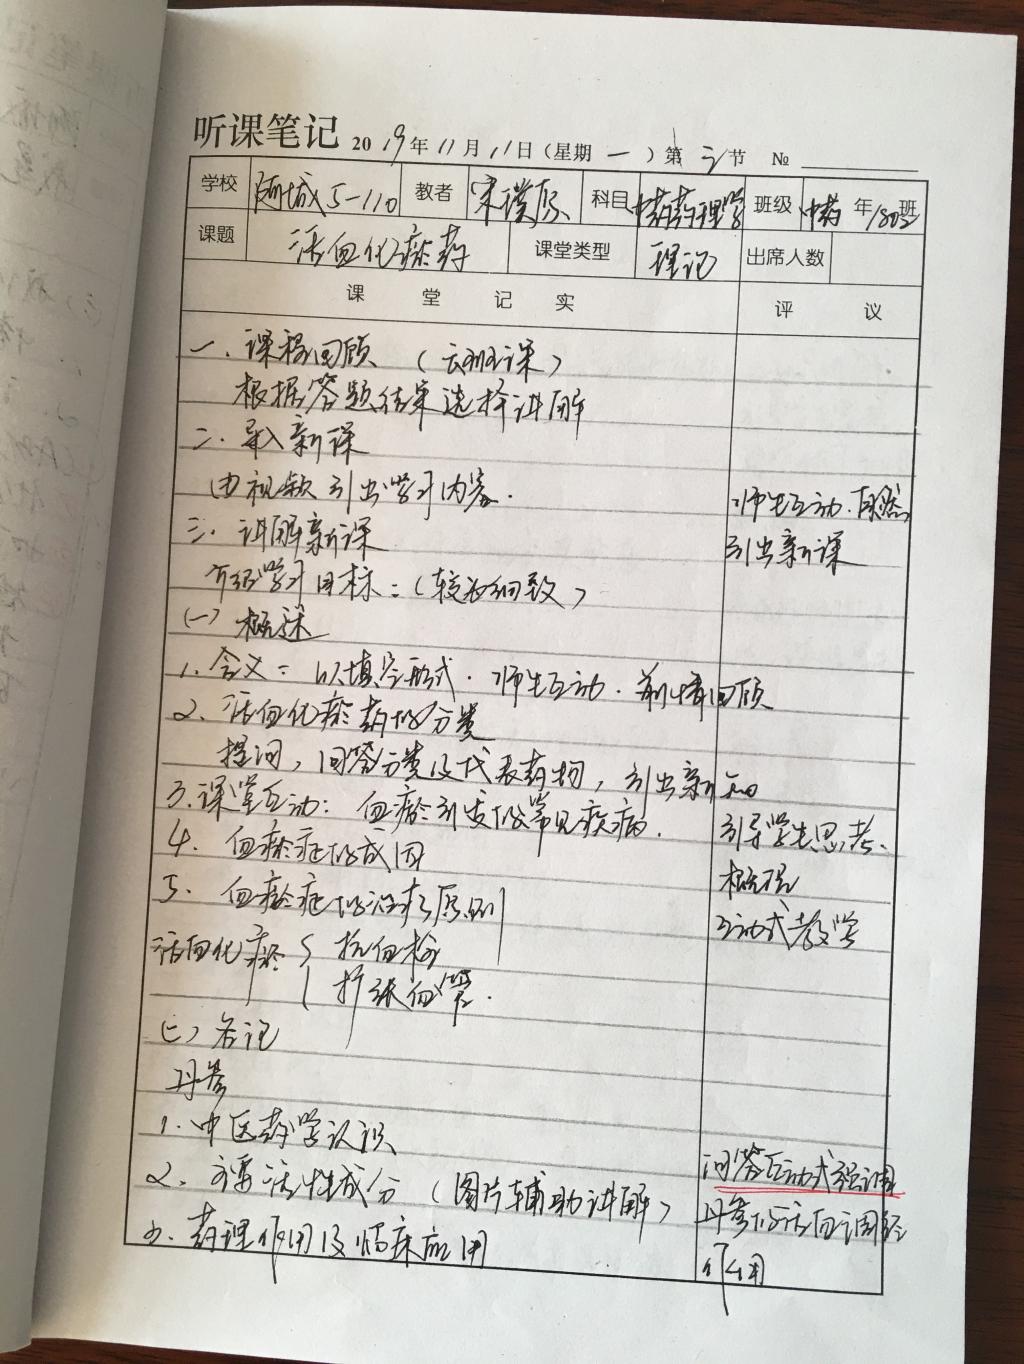 听课笔记 2019年11月11日(星期一)第三节 №
学校 随城5-110 教者 宋璞 科目 中药药理学 班级 中药 年 班
课题 活血化瘀药 课堂类型 理论 出席人数
课堂记实 评议
一、课程回顾 (云班课)
根据答题结果选择讲解
二、导入新课
由视频引出学习内容.
师生互动.自然
三、讲解新课
引出新课
介绍学习目标:(较为细致)
(一)概述
1.含义: 以填空形式.师生互动. 回顾
2、活血化瘀药的分类
提问,回答分类及代表药物,引出新知
3.课堂互动: 血瘀引发的常见疾病.
引导学生思考、
4. 血瘀症的成因
概括
5. 血瘀症的治疗原则
互动式教学
活血化瘀 抗血栓
扩张血管.
(二)各论
丹参
1.中医药学认识
2、主要活性成分(图片辅助讲解)
问答互动式强调
3、药理作用及临床应用
丹参的活血调经
作用